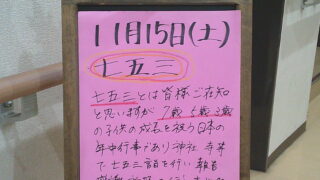 11月15日(土)
七五三
七五三とは皆様ご存知
と思いますが 7歳 5歳 3歳
の子供の成長を祝う日本の
年中行事であり神社・寺等
で七五三詣を行い 報告
感謝